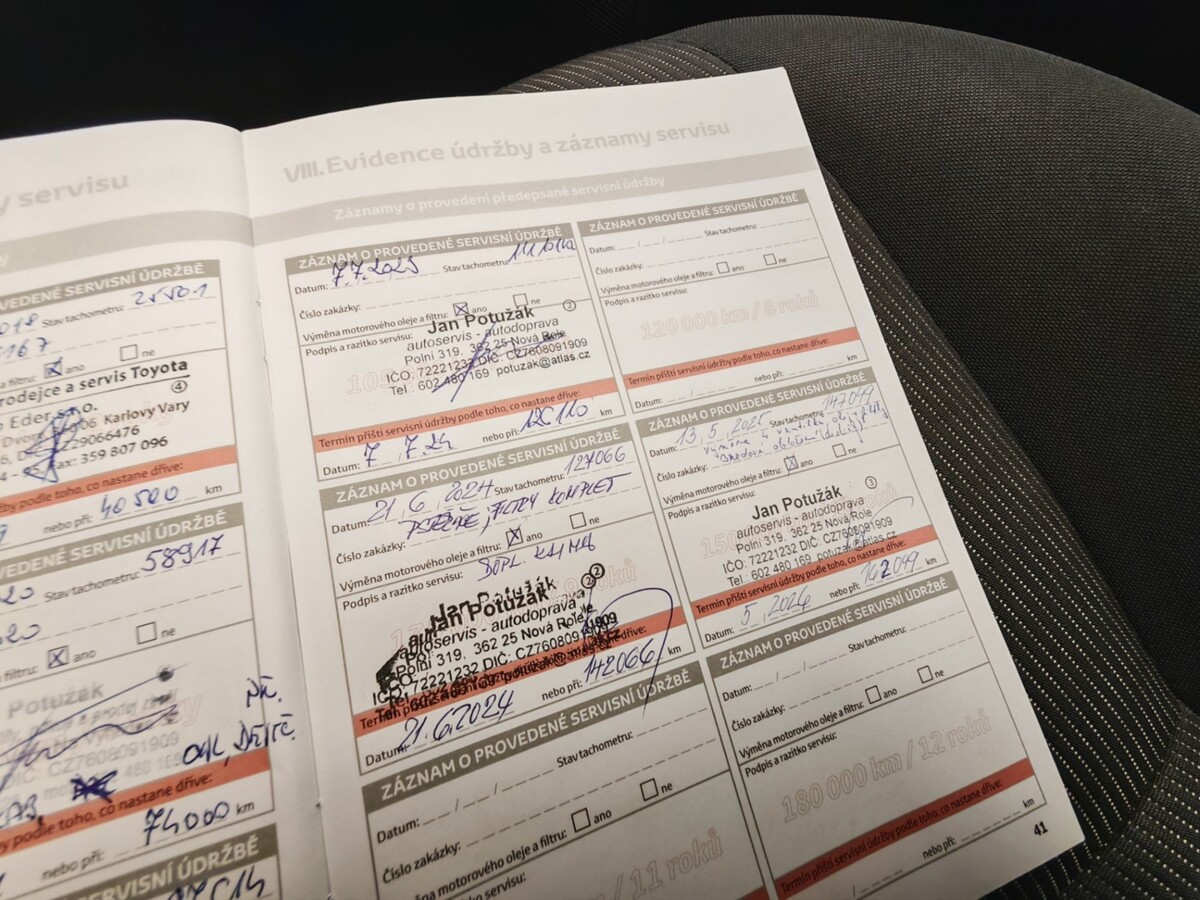 y servisu
VEDENÉ SERVISNÍ ÚDRŽBĚ
018 Stav tachometru: 25501
167
a filtru: ano ne
rodejce a servis Toyota
Eder s.r.o.
Dvory 06 Karlovy Vary
Z29066476
Fax: 359 807 096
podle toho, co nastane dříve:
nebo při: 40500 km
EDENÉ SERVISNÍ ÚDRŽBĚ
20 Stav tachometru: 58917
20
filtru: ano ne
Potužák
DIČ: CZ7608091909
480 169
OLEJ,
podle toho, co nastane dříve:
nebo při: 74000 km
SERVISNÍ ÚDRŽBĚ
VIII. Evidence údržby a záznamy servisu
Záznamy o provedení předepsané servisní údržby
ZÁZNAM O PROVEDENÉ SERVISNÍ ÚDRŽBĚ
Datum: 7.7.2023 Stav tachometru:
Číslo zakázky:
Výměna motorového oleje a filtru: ano ne
Podpis a razítko servisu:
Jan Potužák 2
autoservis - autodoprava
Polní 319, 362 25 Nová Role
IČO: 72221232 DIČ: CZ7608091909
Tel.: 602 480 169 potuzak@atlas.cz
Termín příští servisní údržby podle toho, co nastane dříve:
Datum: 7 . 7.24 nebo při: 126110 km
ZÁZNAM O PROVEDENÉ SERVISNÍ ÚDRŽBĚ
Datum: 21.6.2024 Stav tachometru: 127066
FILTRY KOMPLET
Číslo zakázky:
Výměna motorového oleje a filtru: ano ne
Podpis a razítko servisu: DOPL. KLIMA
Jan Potužák 2
autoservis - autodoprava
Polní 319, 362 25 Nová Role
IČO: 72221232 DIČ: CZ7608091909
Tel.: 602 480 169 potuzak@atlas.cz
Termín příští servisní údržby podle toho, co nastane dříve:
Datum: 21.6.2024 nebo při: 142066 km
ZÁZNAM O PROVEDENÉ SERVISNÍ ÚDRŽBĚ
Datum: Stav tachometru:
Číslo zakázky:
Výměna motorového oleje a filtru: ano ne
Podpis a razítko servisu:
/ 11 roků
ZÁZNAM O PROVEDENÉ SERVISNÍ ÚDRŽBĚ
Datum: Stav tachometru:
Číslo zakázky:
Výměna motorového oleje a filtru: ano ne
Podpis a razítko servisu:
120 000 km / 8 roků
Termín příští servisní údržby podle toho, co nastane dříve:
Datum: nebo při: km
ZÁZNAM O PROVEDENÉ SERVISNÍ ÚDRŽBĚ
Datum: 13.5.2025 Stav tachometru: 147049
výměna
Číslo zakázky: Brzdové obložení
Výměna motorového oleje a filtru: ano ne
Podpis a razítko servisu:
Jan Potužák 3
autoservis - autodoprava
Polní 319, 362 25 Nová Role
IČO: 72221232 DIČ: CZ7608091909
Tel.: 602 480 169 potuzak@atlas.cz
Termín příští servisní údržby podle toho, co nastane dříve:
Datum: 5.2026 nebo při: 162049 km
ZÁZNAM O PROVEDENÉ SERVISNÍ ÚDRŽBĚ
Datum: Stav tachometru:
Číslo zakázky:
Výměna motorového oleje a filtru: ano ne
Podpis a razítko servisu:
180 000 km / 12 roků
Termín příští servisní údržby podle toho, co nastane dříve:
nebo při: km
41